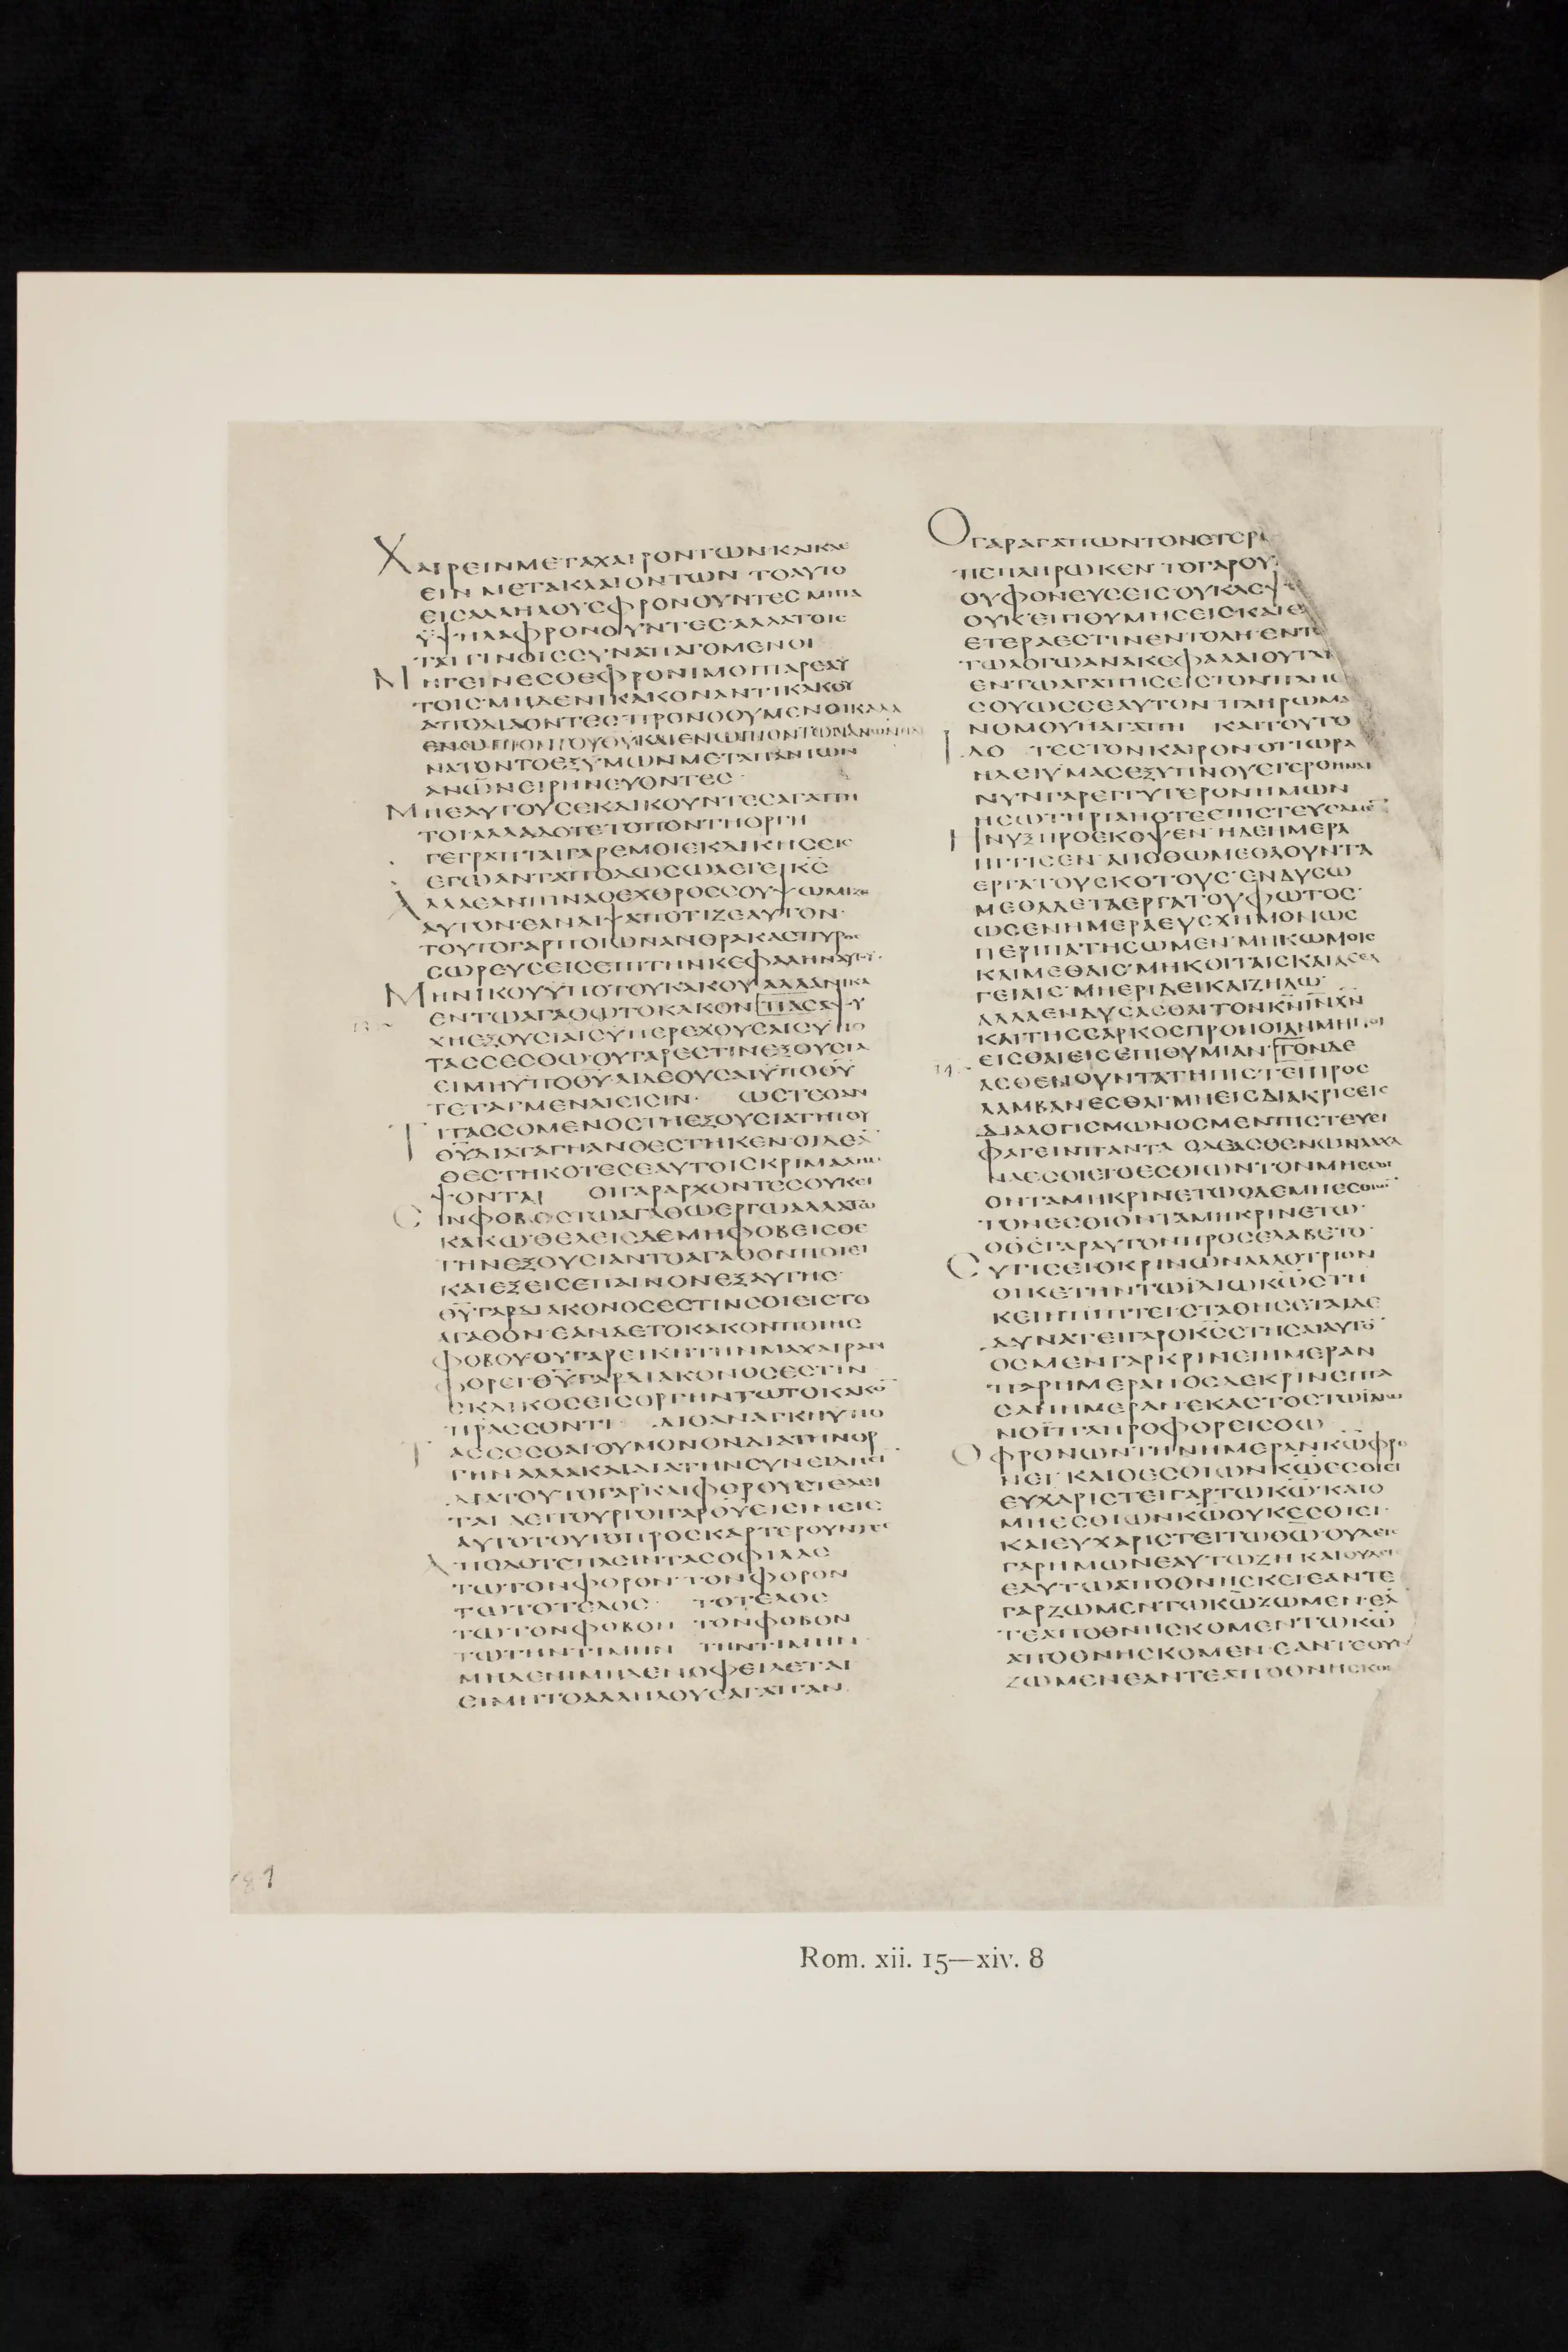 ΧΑΙΡΕΙΝΜΕΤΑΧΑΙΡΟΝΤΩΝΚΑΙΚΛΑΙ
ΕΙΝΜΕΤΑΚΛΑΙΟΝΤΩΝ ΤΟΑΥΤΟ
ΕΙΣΑΛΛΗΛΟΥΣΦΡΟΝΟΥΝΤΕΣΜΗΤΑ
ΫΨΗΛΑΦΡΟΝΟΥΝΤΕΣ·ΑΛΛΑΤΟΙΣ
ΤΑΠΙΝΟΙΣΣΥΝΑΠΑΓΟΜΕΝΟΙ
ΜΗΓΕΙΝΕΣΘΕΦΡΟΝΙΜΟΙΠΑΡΕΑΥ
ΤΟΙΣ·ΜΗΔΕΝΙΚΑΚΟΝΑΝΤΙΚΑΚΟΥ
ΑΠΟΔΙΔΟΝΤΕΣ·ΠΡΟΝΟΟΥΜΕΝΟΙΚΑΛΑ
ΕΝΩΠΙΟΝΤΟΥΘΥΚΑΙΕΝΩΠΙΟΝΤΩΝΑΝΩΝ
ΝΑΤΟΝΤΟΕΞΥΜΩΝΜΕΤΑΠΑΝΤΩΝ
ΑΝΩΝΕΙΡΗΝΕΥΟΝΤΕΣ·
ΜΗΕΑΥΤΟΥΣΕΚΔΙΚΟΥΝΤΕΣΑΓΑΠΗ
ΤΟΙΑΛΛΑΔΟΤΕΤΟΠΟΝΤΗΟΡΓΗ
ΓΕΓΡΑΠΤΑΙΓΑΡΕΜΟΙΕΚΔΙΚΗΣΕΙΣ
ΕΓΩΑΝΤΑΠΟΔΩΣΩΛΕΓΕΙΚΣ
ΑΛΛΑΕΑΝΠΙΝΑΟΕΧΘΡΟΣΣΟΥΨΩΜΙΖΕ
ΑΥΤΟΝ·ΕΑΝΔΙΨΑΠΟΤΙΖΕΑΥΤΟΝ·
ΤΟΥΤΟΓΑΡΠΟΙΩΝΑΝΘΡΑΚΑΣΠΥΡΟΣ
ΣΩΡΕΥΣΕΙΣΕΠΙΤΗΝΚΕΦΑΛΗΝΑΥΤΟΥ·
ΜΗΝΙΚΟΥΫΠΟΤΟΥΚΑΚΟΥΑΛΛΑΝΙΚΑ
ΕΝΤΩΑΓΑΘΩΤΟΚΑΚΟΝ ΠΑΣΑΨΥ
ΧΗΕΞΟΥΣΙΑΙΣΫΠΕΡΕΧΟΥΣΑΙΣΫΠΟ
ΤΑΣΣΕΣΘΩ·ΟΥΓΑΡΕΣΤΙΝΕΞΟΥΣΙΑ
ΕΙΜΗΫΠΟΘΥ·ΑΙΔΕΟΥΣΑΙΫΠΟΘΥ
ΤΕΤΑΓΜΕΝΑΙΕΙΣΙΝ· ΩΣΤΕΟΑΝ
ΤΙΤΑΣΣΟΜΕΝΟΣΤΗΕΞΟΥΣΙΑΤΗΤΟΥ
ΘΥΔΙΑΤΑΓΗΑΝΘΕΣΤΗΚΕΝ·ΟΙΔΕΑ
ΘΕΣΤΗΚΟΤΕΣΕΑΥΤΟΙΣΚΡΙΜΑΛΗΜ
ΨΟΝΤΑΙ ΟΙΓΑΡΑΡΧΟΝΤΕΣΟΥΚΕΙ
ΣΙΝΦΟΒΟΣΤΩΑΓΑΘΩΕΡΓΩΑΛΛΑΤΩ
ΚΑΚΩ·ΘΕΛΕΙΣΔΕΜΗΦΟΒΕΙΣΘΕ
ΤΗΝΕΞΟΥΣΙΑΝΤΟΑΓΑΘΟΝΠΟΙΕΙ
ΚΑΙΕΞΕΙΣΕΠΑΙΝΟΝΕΞΑΥΤΗΣ·
ΘΥΓΑΡΔΙΑΚΟΝΟΣΕΣΤΙΝΣΟΙΕΙΣΤΟ
ΑΓΑΘΟΝ·ΕΑΝΔΕΤΟΚΑΚΟΝΠΟΙΗΣ
ΦΟΒΟΥ·ΟΥΓΑΡΕΙΚΗΤΗΝΜΑΧΑΙΡΑΝ
ΦΟΡΕΙ·ΘΥΓΑΡΔΙΑΚΟΝΟΣΕΣΤΙΝ
ΕΚΔΙΚΟΣΕΙΣΟΡΓΗΝΤΩΤΟΚΑΚΟ
ΠΡΑΣΣΟΝΤΙ· ΔΙΟΑΝΑΓΚΗΥΠΟ
ΤΑΣΣΕΣΘΑΙΟΥΜΟΝΟΝΔΙΑΤΗΝΟΡ
ΓΗΝΑΛΛΑΚΑΙΔΙΑΤΗΝΣΥΝΕΙΔΗΣΙ
ΔΙΑΤΟΥΤΟΓΑΡΚΑΙΦΟΡΟΥΣΤΕΛΕΙ
ΤΑΙ ΛΕΙΤΟΥΡΓΟΙΓΑΡΘΥΕΙΣΙΝΕΙΣ
ΑΥΤΟΤΟΥΤΟΠΡΟΣΚΑΡΤΕΡΟΥΝΤΕΣ
ΑΠΟΔΟΤΕΠΑΣΙΝΤΑΣΟΦΙΛΑΣ
ΤΩΤΟΝΦΟΡΟΝ·ΤΟΝΦΟΡΟΝ
ΤΩΤΟΤΕΛΟΣ· ΤΟΤΕΛΟΣ
ΤΩΤΟΝΦΟΒΟΝ ΤΟΝΦΟΒΟΝ
ΤΩΤΗΝΤΙΜΗΝ ΤΗΝΤΙΜΗΝ·
ΜΗΔΕΝΙΜΗΔΕΝΟΦΕΙΛΕΤΑΙ
ΕΙΜΗΤΟΑΛΛΗΛΟΥΣΑΓΑΠΑΝ.
ΟΓΑΡΑΓΑΠΩΝΤΟΝΕΤΕΡΟ
ΠΕΠΛΗΡΩΚΕΝ·ΤΟΓΑΡΟΥ
ΟΥΦΟΝΕΥΣΕΙΣΟΥΚΛΕΨ
ΟΥΚΕΠΙΘΥΜΗΣΕΙΣ·ΚΑΙΕΙ
ΕΤΕΡΑΕΣΤΙΝΕΝΤΟΛΗ·ΕΝΤΩ
ΤΩΛΟΓΩΑΝΑΚΕΦΑΛΑΙΟΥΤΑΙ
ΕΝΤΩΑΓΑΠΗΣΕΙΣΤΟΝΠΛΗΣ
ΣΟΥΩΣΣΕΑΥΤΟΝ·ΠΛΗΡΩΜΑ
ΝΟΜΟΥΗΑΓΑΠΗ ΚΑΙΤΟΥΤΟ
ΙΔΟ ΤΕΣΤΟΝΚΑΙΡΟΝΟΤΙΩΡΑ
ΗΔΕΙΥΜΑΣΕΞΥΠΝΟΥΕΓΕΡΘΗΝΑΙ
ΝΥΝΓΑΡΕΓΓΥΤΕΡΟΝΗΜΩΝ
ΗΣΩΤΗΡΙΑΗΟΤΕΕΠΙΣΤΕΥΣΑΜΕ
ΗΝΥΞΠΡΟΕΚΟΨΕΝ·ΗΔΕΗΜΕΡΑ
ΗΓΓΙΣΕΝ·ΑΠΟΘΩΜΕΘΑΟΥΝΤΑ
ΕΡΓΑΤΟΥΣΚΟΤΟΥΣ·ΕΝΔΥΣΩ
ΜΕΘΑΔΕΤΑΕΡΓΑΤΟΥΦΩΤΟΣ·
ΩΣΕΝΗΜΕΡΑΕΥΣΧΗΜΟΝΩΣ
ΠΕΡΙΠΑΤΗΣΩΜΕΝ·ΜΗΚΩΜΟΙΣ
ΚΑΙΜΕΘΑΙΣ·ΜΗΚΟΙΤΑΙΣΚΑΙΑΣΕΛ
ΓΕΙΑΙΣ·ΜΗΕΡΙΔΕΙΚΑΙΖΗΛΩ·
ΑΛΛΑΕΝΔΥΣΑΣΘΑΙΤΟΝΚΝΙΗΝΧΝ
ΚΑΙΤΗΣΣΑΡΚΟΣΠΡΟΝΟΙΑΝΜΗΠΟΙ
ΕΙΣΘΑΙΕΙΣΕΠΙΘΥΜΙΑΝ ΤΟΝΔΕ
ΑΣΘΕΝΟΥΝΤΑΤΗΠΙΣΤΕΙΠΡΟΣ
ΛΑΜΒΑΝΕΣΘΑΙ·ΜΗΕΙΣΔΙΑΚΡΙΣΕΙΣ
ΔΙΑΛΟΓΙΣΜΩΝΟΣΜΕΝΠΙΣΤΕΥΕΙ
ΦΑΓΕΙΝΠΑΝΤΑ ΟΔΕΑΣΘΕΝΩΝΛΑΧΑ
ΝΑΕΣΘΙΕΙΟΕΣΘΙΩΝΤΟΝΜΗΕΣΘΙ
ΟΝΤΑΜΗΚΡΙΝΕΤΩΟΔΕΜΗΕΣΘΙΩΝ
ΤΟΝΕΣΘΙΟΝΤΑΜΗΚΡΙΝΕΤΩ·
ΟΘΣΓΑΡΑΥΤΟΝΠΡΟΣΕΛΑΒΕΤΟ·
ΣΥΤΙΣΕΙΟΚΡΙΝΩΝΑΛΛΟΤΡΙΟΝ
ΟΙΚΕΤΗΝΤΩΪΔΙΩΚΩΣΤΗ
ΚΕΙΗΠΙΠΤΕΙ·ΣΤΑΘΗΣΕΤΑΙΔΕ
ΔΥΝΑΤΕΙΓΑΡΟΚΣΣΤΗΣΑΙΑΥΤΟ
ΟΣΜΕΝΓΑΡΚΡΙΝΕΙΗΜΕΡΑΝ
ΠΑΡΗΜΕΡΑΝΟΣΔΕΚΡΙΝΕΙΠΑ
ΣΑΝΗΜΕΡΑΝ·ΕΚΑΣΤΟΣΤΩΪΔΙΩ
ΝΟΪΠΛΗΡΟΦΟΡΕΙΣΘΩ
ΟΦΡΟΝΩΝΤΗΝΗΜΕΡΑΝΚΩΦΡΟ
ΝΕΙ·ΚΑΙΟΕΣΘΙΩΝΚΩΕΣΘΙΕΙ
ΕΥΧΑΡΙΣΤΕΙΓΑΡΤΩΚΩ·ΚΑΙΟ
ΜΗΕΣΘΙΩΝΚΩΟΥΚΕΣΘΙΕΙ·
ΚΑΙΕΥΧΑΡΙΣΤΕΙΤΩΘΩ·ΟΥΔΕΙΣ
ΓΑΡΗΜΩΝΕΑΥΤΩΖΗΚΑΙΟΥΔΕΙΣ
ΕΑΥΤΩΑΠΟΘΝΗΣΚΕΙΕΑΝΤΕ
ΓΑΡΖΩΜΕΝΤΩΚΩΖΩΜΕΝ·ΕΑ
ΤΕΑΠΟΘΝΗΣΚΟΜΕΝΤΩΚΩ
ΑΠΟΘΝΗΣΚΟΜΕΝ·ΕΑΝΤΕΟΥΝ
ΖΩΜΕΝΕΑΝΤΕΑΠΟΘΝΗΣΚΟΜ
Rom. xii. 15—xiv. 8